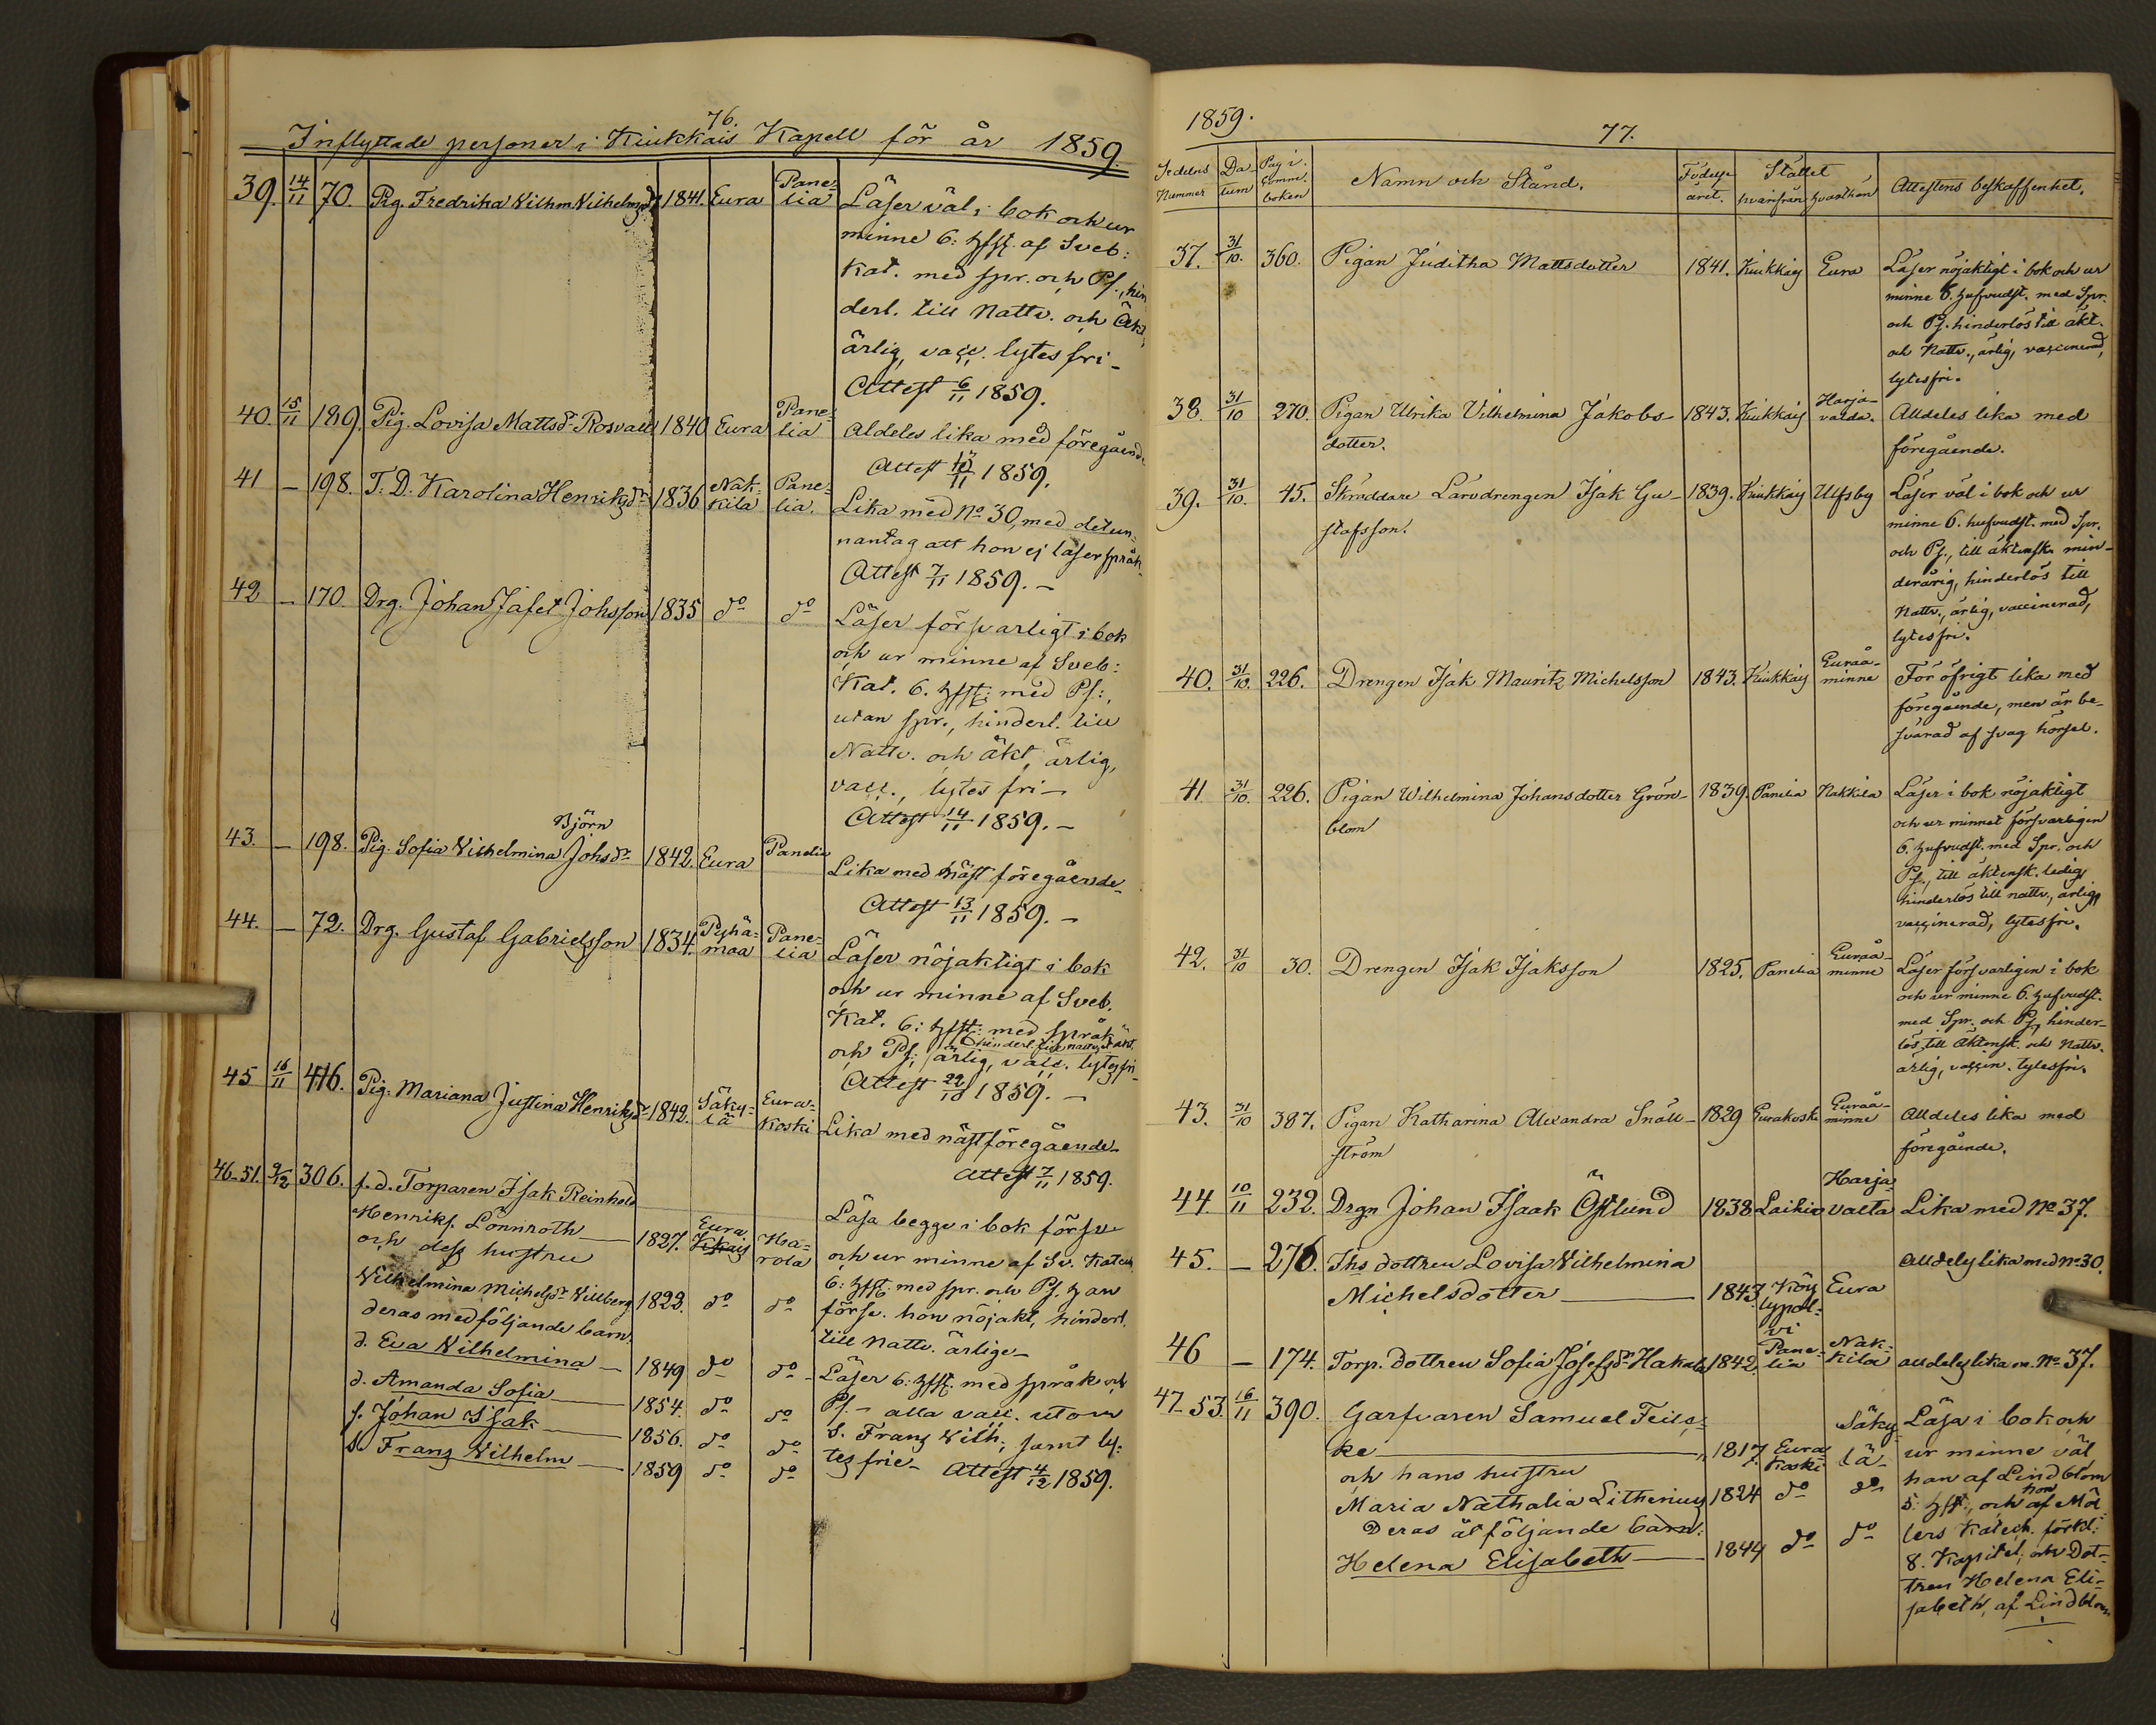 76.
Inflyttade personer i Kiukkais Kapell för år 1859.
39. 14/11 70. Pig. Fredrika Vilhm Vilhelmsdr 1841. Eura Pane-
lia
Läser väl i bok och ur
minne 6: hfst. af Sveb:
Kat. med spr. och Ps., hin
derl. till Nattv. och Äkt,
ärlig, vacc. lytesfri-
Attest 6/11 1859.
40. 15/11 189. Pig. Lovisa Mattsdr Rosvall 1840 Eura Pane-
lia
Aldeles lika med föregående
Attest 1859.
41 - 198. T. D. Karolina Henriksdr 1836 Nak-
kila Pane-
lia.
Lika med No 30, med det un-
nantag att hon ej läser språk.
Attest 7/11 1859. -
42 - 170. Drg. Johan Jafet Johsson 1835 do do
Läser försvarligt i bok
och ur minne af Sveb:
Kat. 6. hfst: med Ps:,
utan spr., hinderl. till
Nattv. och äkt, ärlig,
vacc., lytes fri-
Attest 14/11 1859. -
Björn
43. - 198. Pig. Sofia Vilhelmina Johsdr 1842. Eura Panelia
Lika med näst föregående-
Attest 13/11 1859. -
44. - 72. Drg. Gustaf Gabrielsson 1834. Pyhä-
maa Pane-
lia
Läser nöjaktigt i bok
och ur minne af Sveb.
Kat. 6: hfst: med språk
hinderl. till nattv. & äkt.
och Ps: ärlig, vacc. lytesfri-
Attest 22/10 1859. -
45 16/11 416. Pig. Mariana Justina Henriksdr 1842. Säky-
lä Eura-
koski
Lika med nästföregående-
Attest 7/11 1859.
46-51. 9/12 306. f.d. Torparen Isak Reinhold
Henriks. Lönnroth 1827. Eura
Kkais Ha-
rola
och dess hustru
Wilhelmina Michelsdr Villberg 1822. do do
deras medföljande barn.
d. Eva Wilhelmina 1849 do do
d. Amanda Sofia 1854. do do
s. Johan Isak 1856. do do
s. Franz Vilhelm 1859 do do
Läsa begge i bok försv
och ur minne af Sv. Katech
6: hfst: med spr. och Ps. han
försv. hon nöjakt, hinderl.
till nattv. ärlige-
Läser 6: hfst. med språk och
Ps. - alla vacc. utom
s. Franz Vilh, samt ly-
tes frie- Attest 4/12 1859.
1859.
77.
Sedelns
Nummer
Da-
tum
Pag i
Comm.
boken
Namn och Stånd.
Födelse
året.
Stället
hvarifrån hvarthän
Attestens beskaffenhet.
37. 31/10. 360. Pigan Juditha Mattsdotter 1841. Kiukkais Eura
Läser nöjaktigt i bok och ur
minne 6. hufvudst. med Spr.
och Ps. hinderlös till äkt.
och Nattv., ärlig, vaccinerad,
lytesfri.
38. 31/10 270. Pigan Ulrika Vilhelmina Jakobs-
dotter. 1843. Kiukkais Harja-
valda.
Alldeles lika med
föregående.
39. 31/10. 45. Skräddare Läredrengen Isak Gu-
stafsson. 1839. Kiukkais Ulfsby
Läser väl i bok och ur
minne 6. hufvudst. med Spr.
och Ps., till äktensk. min-
derårig, hinderlös till
Nattv., ärlig, vaccinerad,
lytesfri.
40. 31/10. 226. Drengen Isak Mauritz Michelsson 1843. Kiukkais Euraå-
minne
För öfrigt lika med
föregående, men är be-
svärad af svag hörsel.
41 31/10. 226. Pigan Wilhelmina Johansdotter Grön-
blom 1839. Panelia Nakkila
Läser i bok nöjaktigt
och ur minnet försvarligen
6. hufvudst. med Spr. och
Ps., till äktensk. ledig,
hinderlös till nattv., ärlig,
vaccinerad, lytesfri.
42. 31/10 30. Drengen Isak Isaksson 1825. Panelia Euraå-
minne
Läser försvarligen i bok
och ur minne 6. hufvudst.
med Spr. och Ps, hinder-
lös till äktensk. och Nattv.
ärlig, vaccin. lytesfri.
43. 31/10 387. Pigan Katharina Alexandra Snäll-
ström 1829 Eurakoski Euraå-
minne
Alldeles lika med
föregående.
44. 10/11 232. Drgn Johan Isaak Östlund 1838 Laihio Harja-
valta Lika med No 37.
45. - 276. Ths dottren Lovisa Wilhelmina
Michelsdotter 1843 Köy
lypol-
vi Eura
Alldeles lika med No 30.
46 - 174. Torp. dottren Sofia Josefsdr Hakala 1842. Pane-
lia Nak-
kila alldeles lika m. No 37.
47-53. 16/11 390. Garfvaren Samuel Feils-
ke 1817. Eura
Koski Säky-
lä-
och hans hustru
Maria Nathalia Lithenius 1824 do do
Deras åtföljande barn:
Helena Elisabeth 1844 do do
Läsa i bok och
ur minne väl
han af Lindblom
hon
5: hfst., och af Möl
lers Katech. förkl:
8. Kapitel, och Dot-
tren Helena Eli-
sabeth, af Lindblom